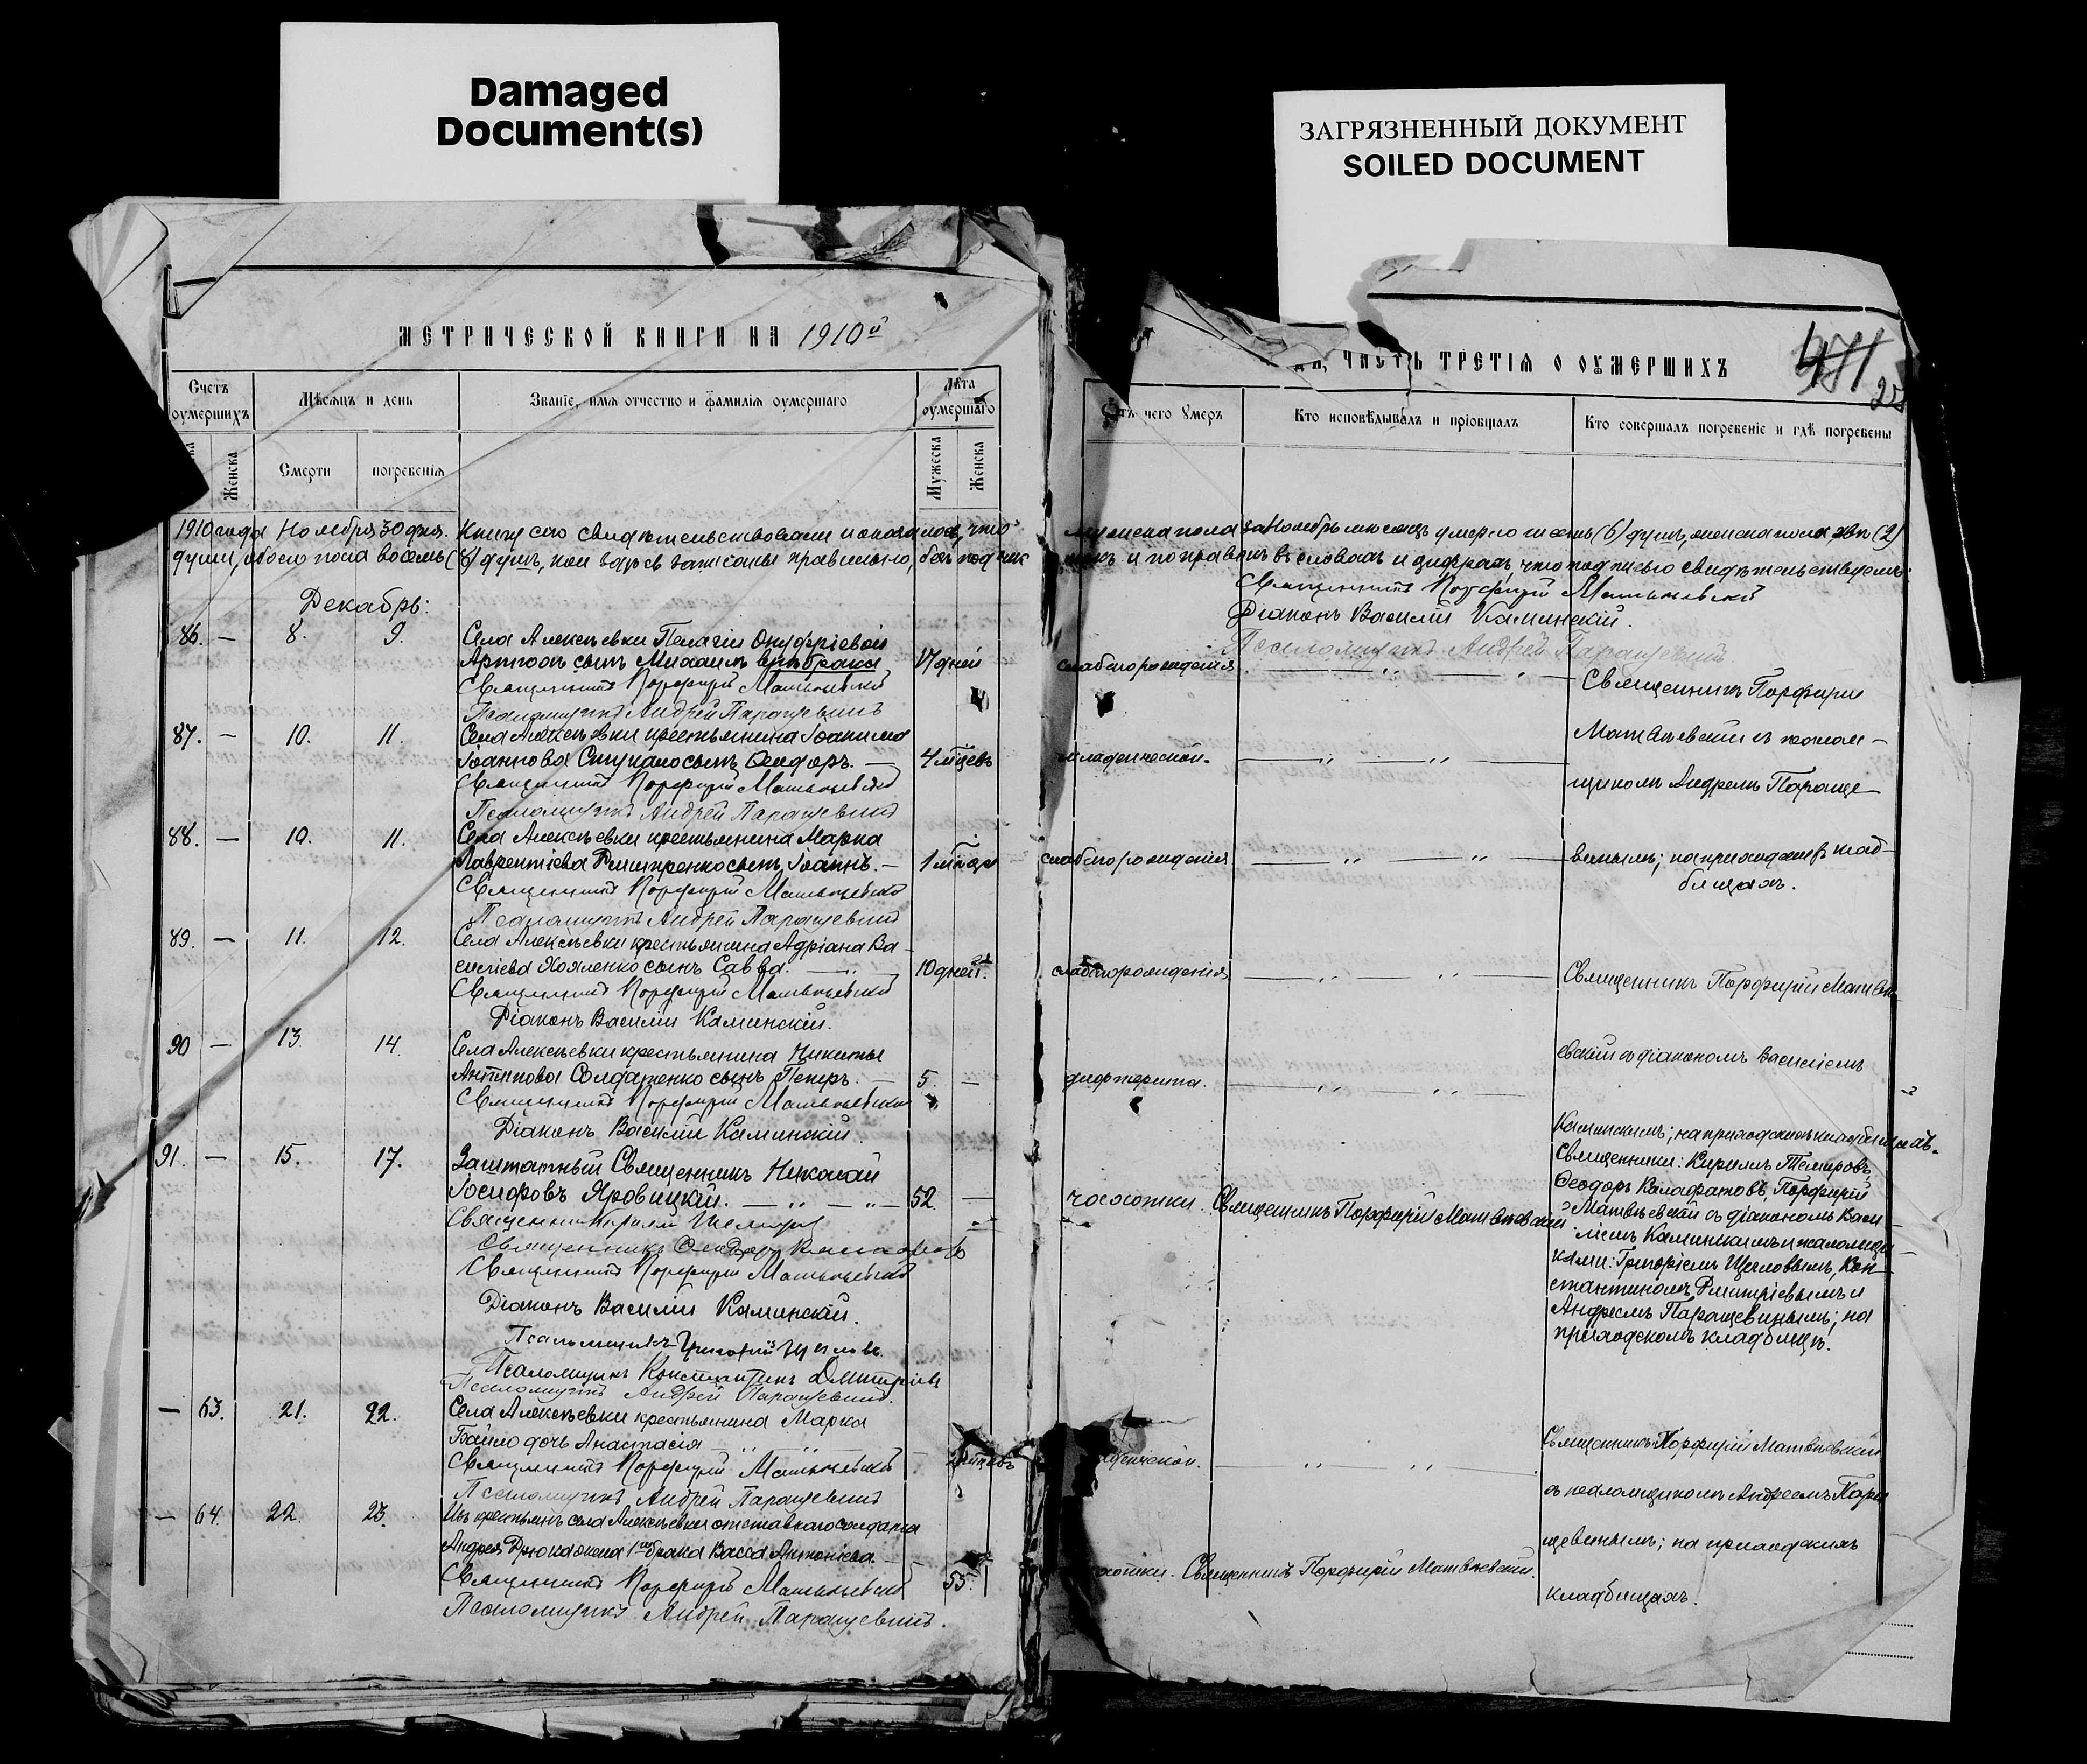 Damaged
Document(s)
ЗАГРЯЗНЕННЫЙ ДОКУМЕНТ
SOILED DOCUMENT
МЕТРИЧЕСКОЙ КНИГИ НА 1910й
Счетъ оумершихъ
Мѣсяцъ и день
Званіе, имя отчество и фамилія оумершаго
Лѣта оумершаго
Женска
Смерти
погребенія
Мужеска
Женска
1910 года Ноября 30 дня. Книгу сію свидѣтельствовали и оказалось, что
души, обоего пола восемь (8) душъ, кои здѣсь записаны правильно, безъ подчис
Декабрь:
86. — 8. 9. Села Алексѣевки Пелагіи Онуфріевой
сынъ Михаилъ внѣ брака 17 дней
Священникъ Порфирій Матвѣевскій
Псаломщикъ Андрей Паращевинъ
87. — 10. 11. Села Алексѣевки крестьянина Іоакима
Іоаннова сынъ Ѳеодоръ. — 4 мѣсяц.
Священникъ Порфирій Матвѣевскій
Псаломщикъ Андрей Паращевинъ
88. — 10. 11. Села Алексѣевки крестьянина Марка
Лаврентіева Дмитренко сынъ Іоаннъ. — 1 мѣсяц
Священникъ Порфирій Матвѣевскій
Псаломщикъ Андрей Паращевинъ
89. — 11. 12. Села Алексѣевки крестьянина Адріана Ва-
силіева сынъ Савва. — 10 дней.
Священникъ Порфирій Матвѣевскій
Діаконъ Василій Каминскій.
90 — 13. 14. Села Алексѣевки крестьянина Никиты
Антипова Солдатенко сынъ Петръ. — 5. —
Священникъ Порфирій Матвѣевскій
Діаконъ Василій Каминскій.
91. — 15. 17. Заштатный Священникъ Николай
Іосифовъ Яровицкій. — „ — „ — 52. —
Священникъ Кириллъ
Священникъ Ѳеодоръ Калафатовъ
Священникъ Порфирій Матвѣевскій
Діаконъ Василій Каминскій.
Псаломщикъ Григорій
Псаломщикъ Константинъ Дмитріевъ
Псаломщикъ Андрей Паращевинъ.
— 63. 21. 22. Села Алексѣевки крестьянина Марка
дочь Анастасія — „ — „ —
Священникъ Порфирій Матвѣевскій
Псаломщикъ Андрей Паращевинъ
— 64. 22. 23. Изъ крестьянъ села Алексѣевки отставного солдата
Андрея жена 1го брака Васса Антоніева. —
Священникъ Порфирій Матвѣевскій 55.
Псаломщикъ Андрей Паращевинъ.
ЧАСТЬ ТРЕТІЯ О ОУМЕРШИХЪ
481
25
Отъ чего Умеръ
Кто исповѣдывалъ и пріобщалъ
Кто совершалъ погребеніе и гдѣ погребены
мужска пола за Ноябрь мѣсяцъ умерло шесть (6) душъ, женска пола двѣ (2)
и поправокъ въ словахъ и цифрахъ, что подписью свидѣтельствуемъ:
Священникъ Порфирій Матвѣевскій
Діаконъ Василій Каминскій.
Псаломщикъ Андрей Паращевинъ
слаборожденія — „ — „ — Священникъ Порфирій
Матвѣевскій съ псалом-
младенческой. — „ — „ —
щикомъ Андреемъ Параще-
слаборожденія — „ — „ — винымъ; на приходскихъ клад-
бищахъ.
слаборожденія — „ — „ — Священникъ Порфирій Матвѣ-
евскій съ діакономъ Василіемъ
дифтерита. — „ — „ —
Каминскимъ; на приходскихъ кладбищахъ.
Священники: Кириллъ
Ѳеодоръ Калафатовъ, Порфирій
чахотки. Священникъ Порфирій Матвѣевскій. Матвѣевскій съ діакономъ Васи-
ліемъ Каминскимъ и псаломщи-
ками: Григоріемъ Кон-
стантиномъ Дмитріевымъ и
Андреемъ Паращевинымъ; на
приходскомъ кладбищѣ.
денческой. — „ — „ — Священникъ Порфирій Матвѣевскій
съ псаломщикомъ Андреемъ Пара-
щевинымъ; на приходскихъ
хотки. Священникъ Порфирій Матвѣевскій.
кладбищахъ.